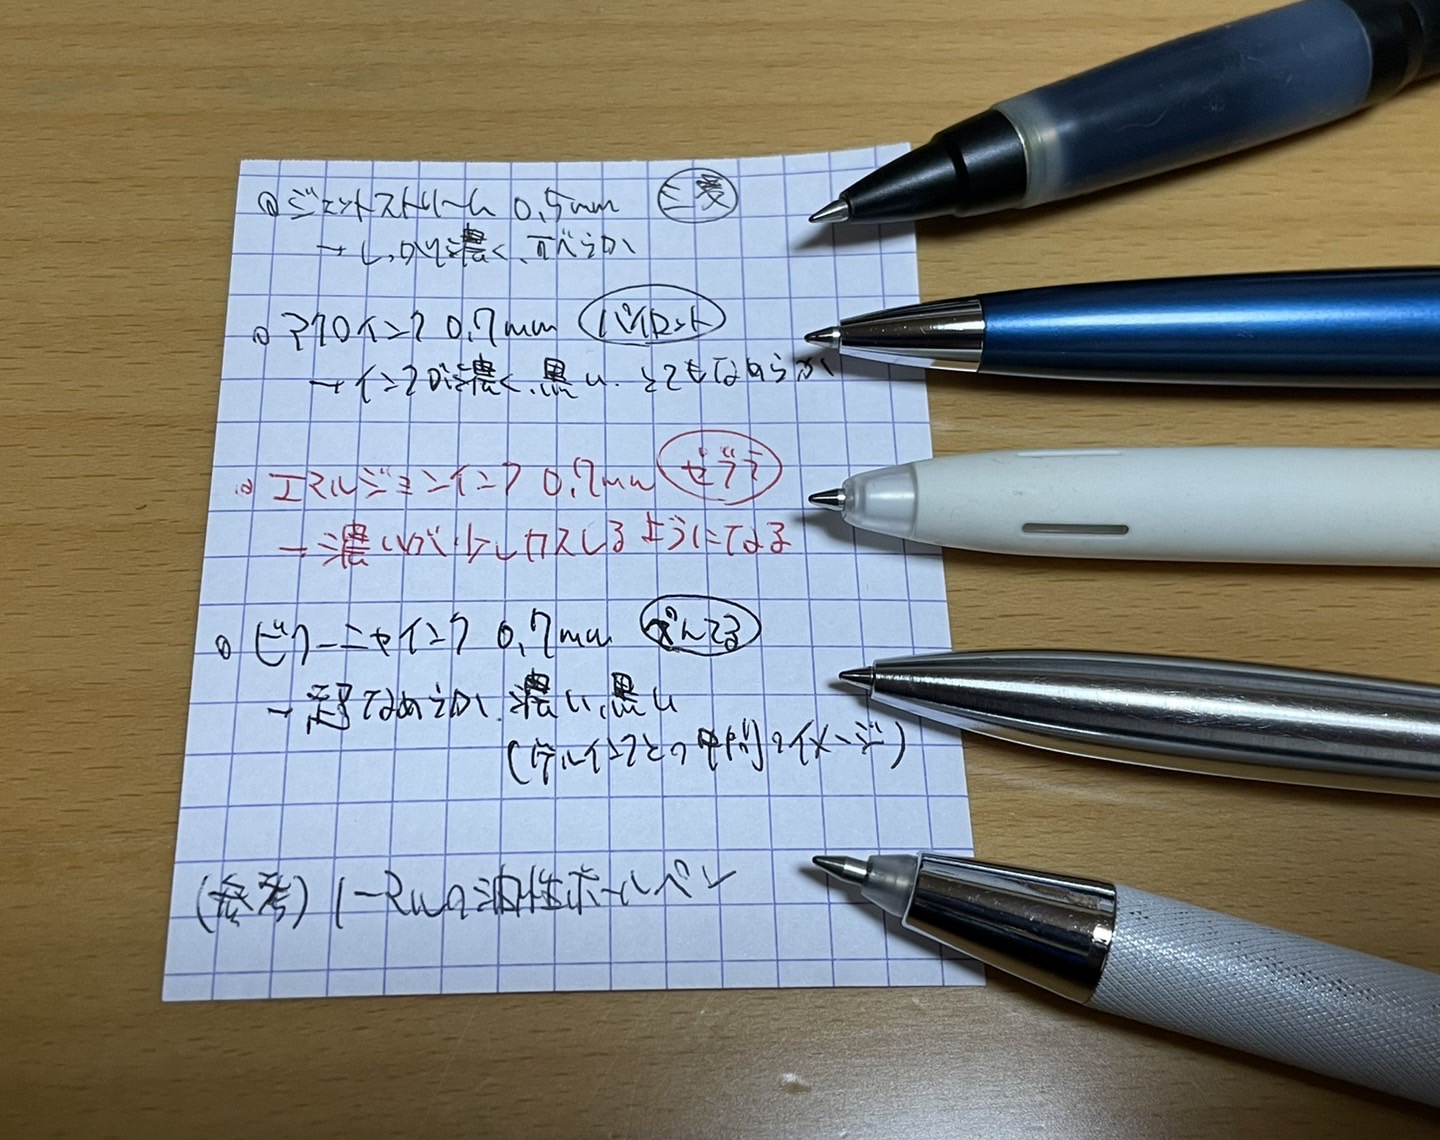 ① ジェットストリーム 0.5mm 三菱
→ しっかり濃く、すべらか
① アクロインク 0.7mm パイロット
→ インクが濃く、黒い、とてもなめらか
① エマルジョンインク 0.7mm ゼブラ
→ 濃いが少しカスレるようになる
① ビクーニャインク 0.7mm ぺんてる
→ 超なめらか、濃い、黒い
(ゲルインクとの中間のイメージ)
(参考) の油性ボールペン